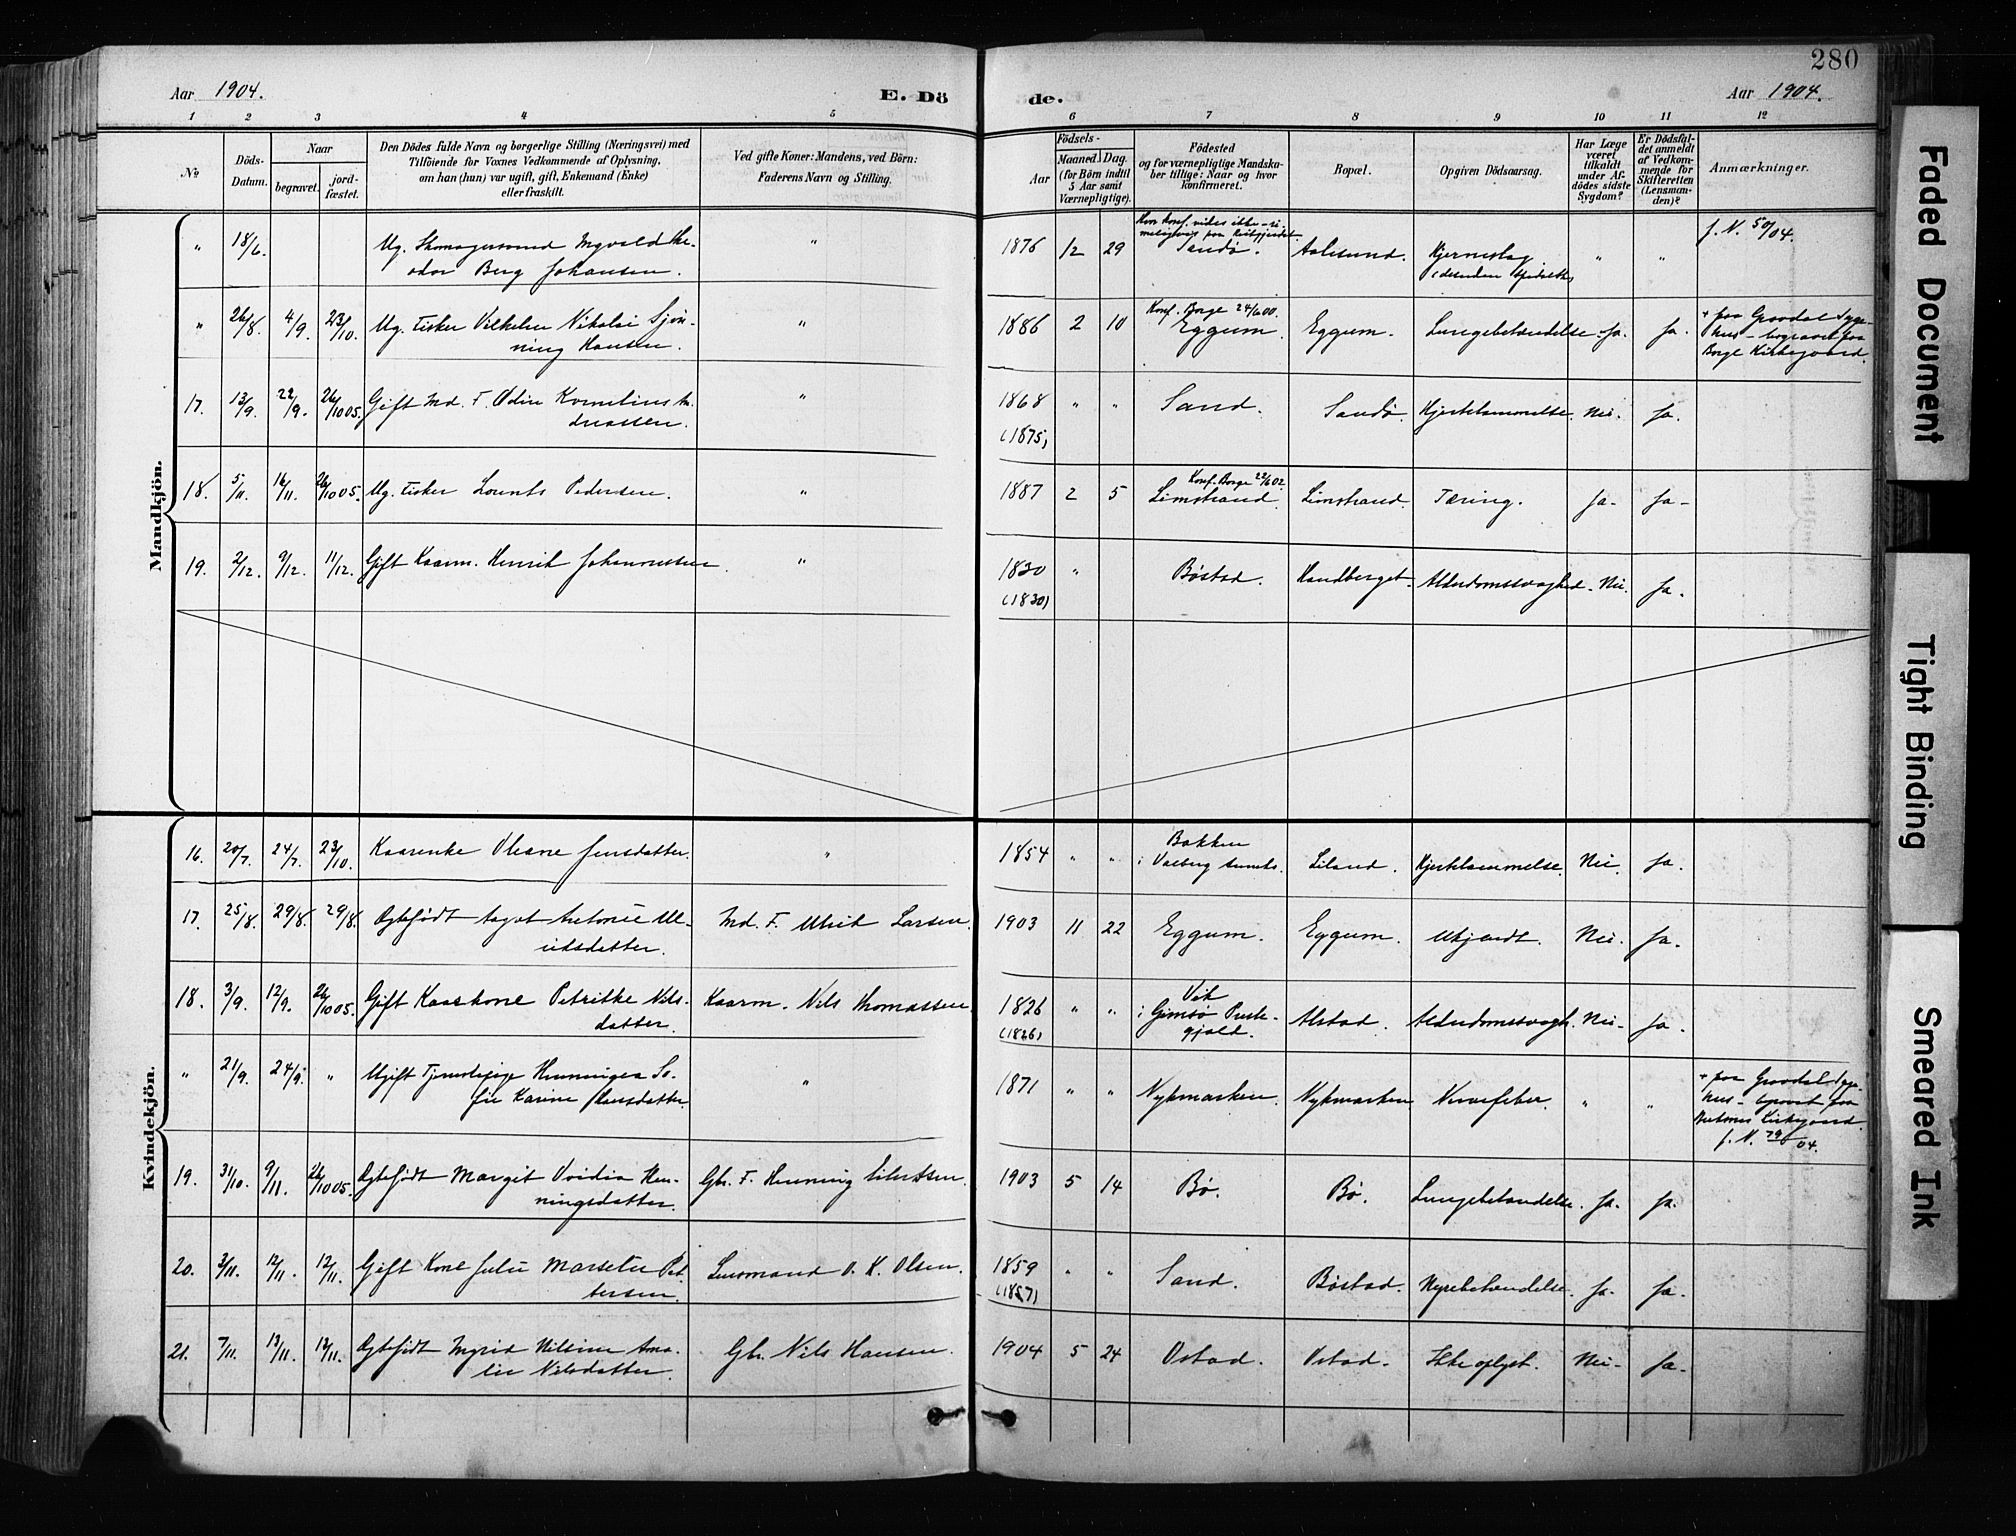 280
Aar 1904.
E. Döde.
Aar 1904.
1 2 3 4 5 6 7 8 9 10 11 12
№
Döds-Datum.
Naar
begravet.
jordfæstet.
Den Dödes fulde Navn og borgerlige Stilling (Næringsvei) med
Tilföiende for Voxnes Vedkommende af Oplysning,
om han (hun) var ugift, gift, Enkemand (Enke)
eller fraskilt.
Ved gifte Koner: Mandens, ved Börn:
Faderens Navn og Stilling.
Födsels-
Aar
Maaned. Dag.
(for Börn indtil
5 Aar samt
Værnepligtige).
Födested
og for værnepligtige Mandska-
ber tillige: Naar og hvor
konfirmeret.
Bopæl.
Opgiven Dödsaarsag.
Har Læge
været
tilkaldt
under Af-
dödes sidste
Sygdom?
Er Dödsfal-
det anmeldt
af Vedkom-
mende for
Skifteretten
(Lensman-
den)?
Anmærkninger.
Mandkjön.
" 18/6. Ug. Skomagersvend Ingvald The-
odor Berg Johansen. " 1876 12 29 Sandö. Aalesund. Hjerneslag " " f. N. 50/04.
" 26/8. 4/9. 23/10. Ug. Fisker Vilhelm Nikolai Sjön-
ning Hansen. " 1886 2 10 Konf. Borge 24/6 00. Eggum. Eggum. Lungebetændelse. Ja. Ja. + paa Gravdal Syge-
hus - begravet paa
Borge Kirkegaard.
17. 13/9. 22/9. 26/10 05. Gift Md. F. Odin Kornelius An-
dreassen. " 1868 (1875) " " Sand. Sandö. Hjertelammelse. Nei. Ja.
18. 5/11. 16/11. 26/10 05. Ug. Fisker Lorents Pedersen. " 1887 2 5 Konf. Borge 22/6 02. Limstrand. Limstrand. Tæring. Ja- Ja-
19. 2/12. 9/12. 11/12. Gift Kaarm. Henrik Johannessen. " 1830 (1830) " Böstad. Handberget. Alderdomssvaghed. Nei. Ja.
Kvindekjön.
16. 20/7. 24/7. 23/10. Kaarenke Oleane Jensdatter. " 1854 " " Bakken
i Valberg Anneks. Liland. Hjertelammelse. Nei. Ja.
17. 25/8. 29/8. 29/8. Ægtefödt Aagot Antonie Ul-
riksdatter. Md. F. Ulrik Larsen. 1903 11 22 Eggum. Eggum. Ukjendt. Nei. Ja.
18. 3/9. 12/9. 26/10 05. Gift Kaarkone Petrikke Nils-
datter. Kaarm. Nils Thomassen. 1826 (1826) " " Vik
i Gimsö Præste-
gjeld. Alstad. Alderdomssvagh. Nei- Ja-
" 21/9. 24/9. " Ugift Tjenestepige Henningea So-
fie Karine Hansdatter. " 1871 " " Nykmarken. Nykmarken. Nervefeber. " " + paa Gravdal Syge-
hus - begravet paa
Buksnes Kirkegaard.
f. N. 79/04.
19. 31/10. 9/11. 26/10 05. Ægtefödt Margit Ovidia Hen-
ningsdatter. Gbr. F. Henning Eilertsen. 1903 5 14 Bö. Bö. Lungebetændelse. Ja. Ja.
20. 3/11. 12/11. 12/11. Gift Kone Julie Marselie Pet-
tersen. Lensmand O. K. Olsen. 1859 (1857) " " Sand. Böstad. Nyrebetændelse. Ja. Ja.
21. 7/11. 13/11. 13/11. Ægtefödt Ingrid Nilsine Ama-
lie Nilsdatter. Gbr. Nils Hansen. 1904 5 24 Ostad. Ostad. Ikke oplyst. Nei- Ja-
Faded Document
Tight Binding
Smeared Ink